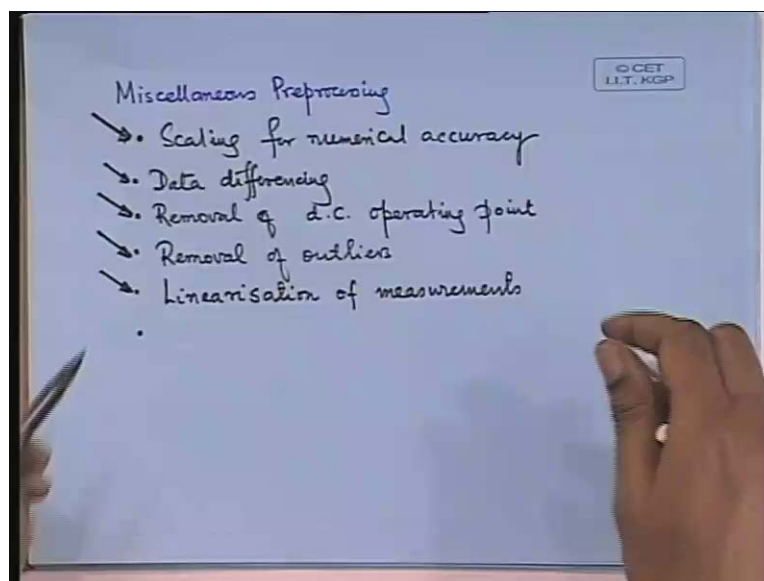 © CET
I.I.T. KGP
Miscellaneous Preprocessing
• Scaling for numerical accuracy
• Data differencing
• Removal of d.c. operating point
• Removal of outliers
• Linearisation of measurements
•